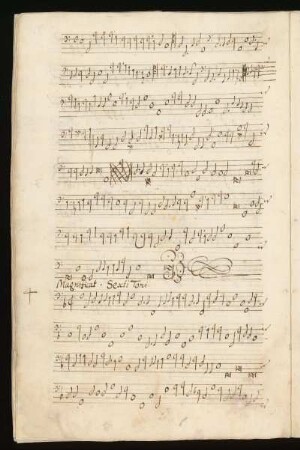 Magnificat · Sexti Toni